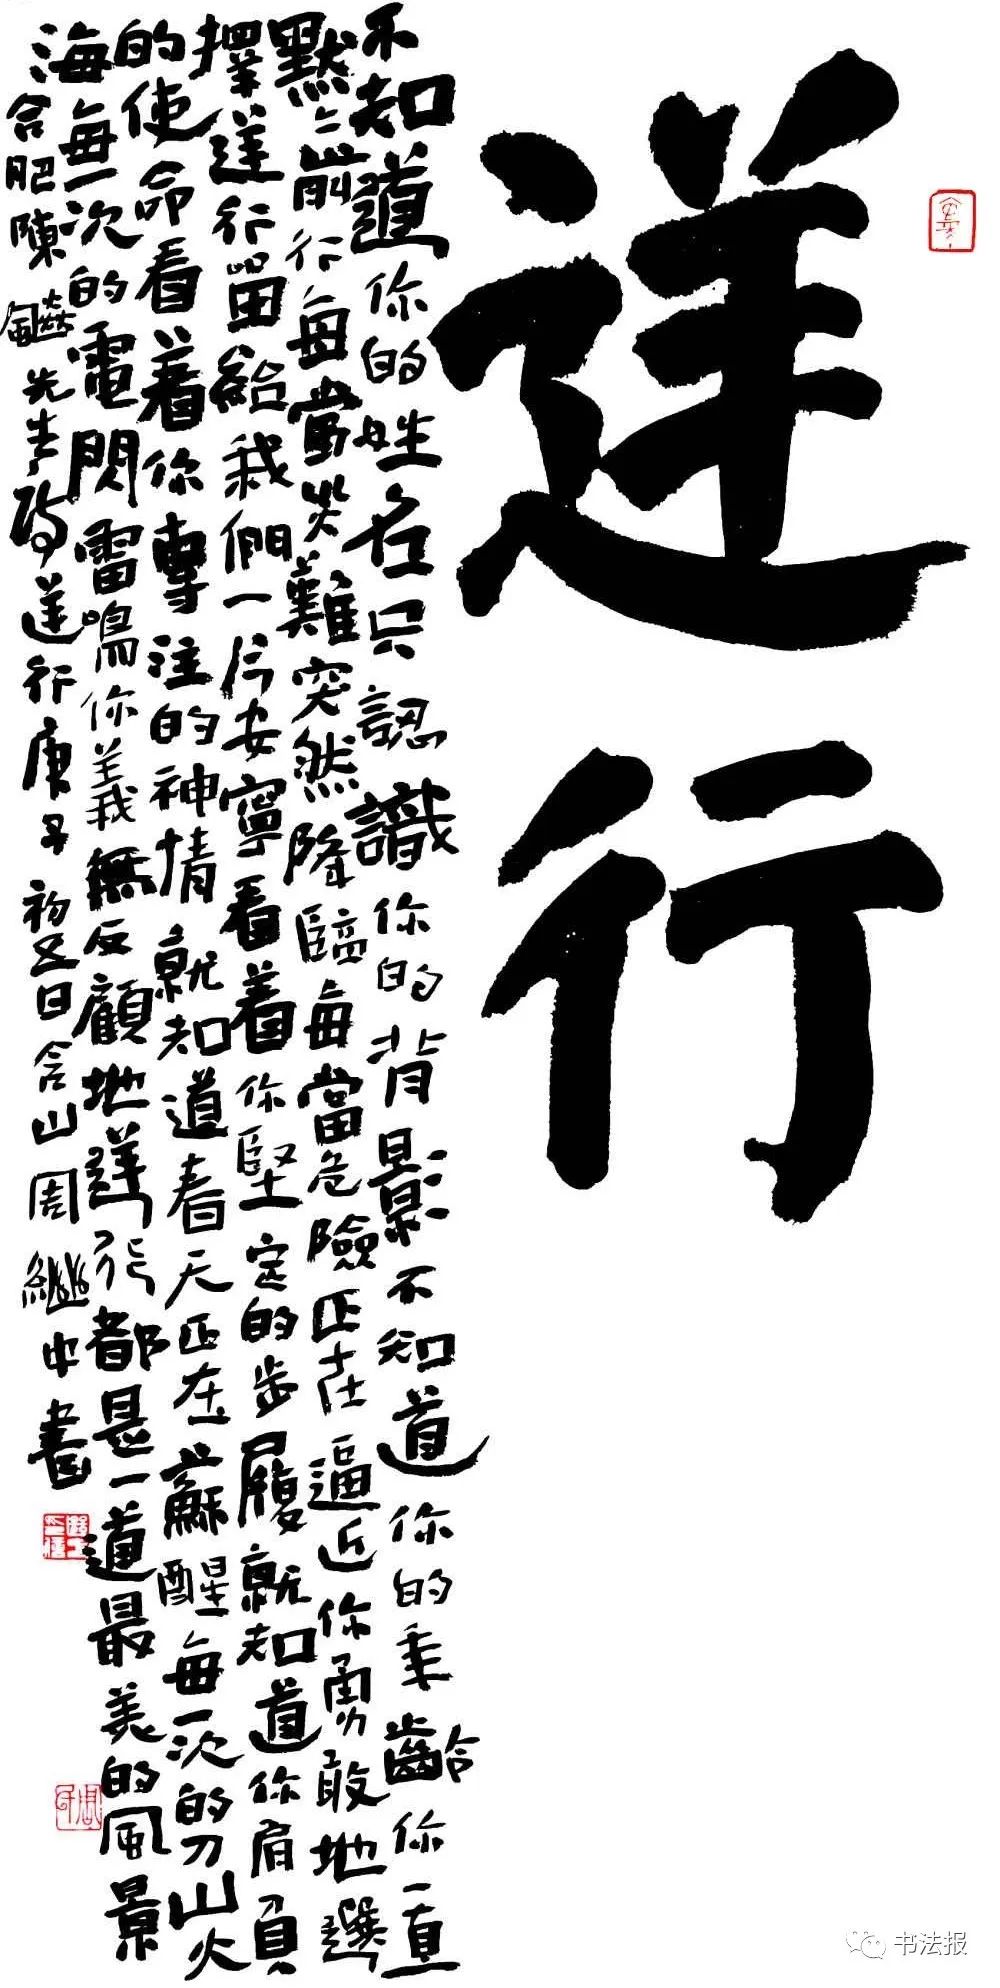 逆行
不知道你的姓名只認識你的背影不知道你的年齡你一直
默々前行每當災難突然降臨每當危險正在逼近你勇敢地選
擇逆行留給我們一片安寧看着你堅定的步履就知道你肩負
的使命看着你專注的神情就知道春天正在蘇醒每一次的刀山火
海每一次的電閃雷鳴你義無反顧地逆行都是一道最美的風景
合肥陳先生詩逆行庚子初五日含山周繼中書
书法报